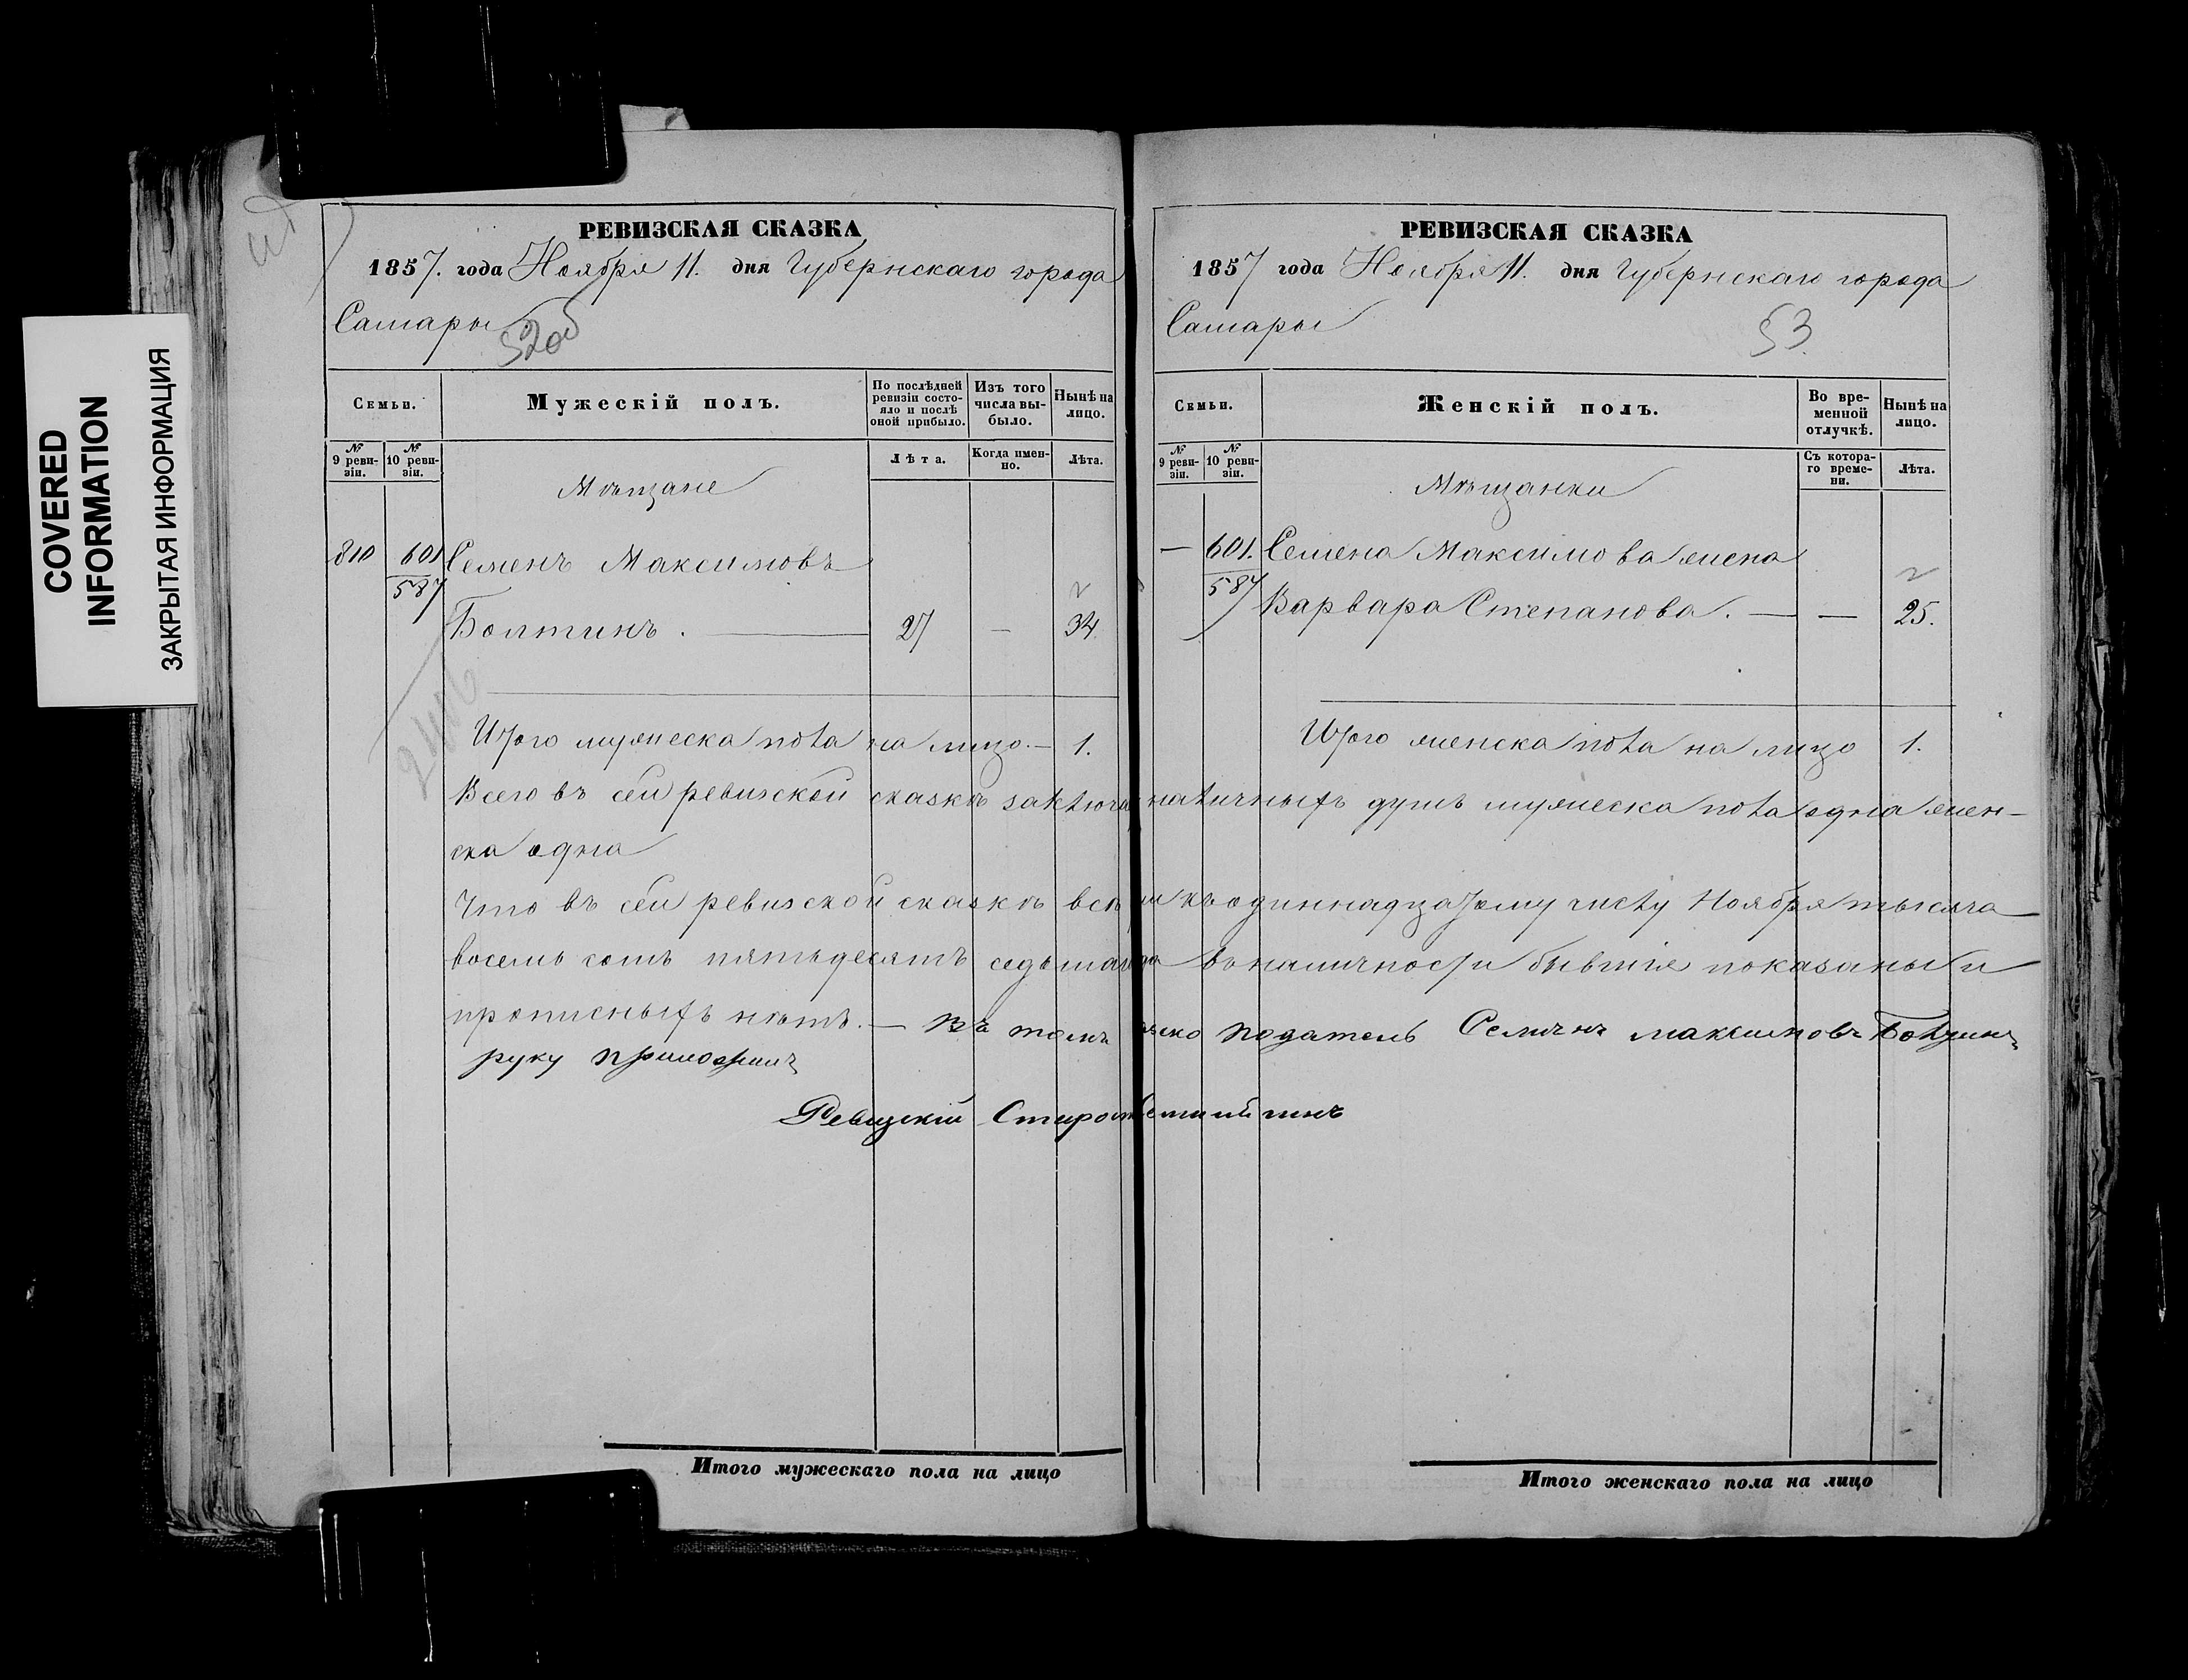 COVERED
INFORMATION
ЗАКРЫТАЯ ИНФОРМАЦИЯ
РЕВИЗСКАЯ СКАЗКА
1857. года Ноября 11. дня Губернскаго города
Самары
52об
Семьи.
Мужескій полъ.
По послѣдней ревизіи состояло и послѣ оной прибыло.
Изъ того числа выбыло.
Нынѣ на лицо.
№ 9 ревизіи.
№ 10 ревизіи.
Лѣта.
Когда именно.
Лѣта.
Мѣщане
810 601 Семенъ Максимовъ
587
Болтинъ. — 27 — 34.
Итого мужеска пола на лицо. — 1.
РЕВИЗСКАЯ СКАЗКА
1857 года Ноября 11. дня Губернскаго города
Самары
53
Семьи.
Женскій полъ.
Во временной отлучкѣ.
Нынѣ на лицо.
№ 9 ревизіи.
№ 10 ревизіи.
Съ котораго времени.
Лѣта.
Мѣщанки
— 601. Семена Максимова жена
587 Варвара Степанова. — — 25.
Итого женска пола на лицо 1.
Всего въ сей ревизской сказкѣ наличныхъ душъ мужеска пола одна жен-
ска одна
Что въ сей ревизской сказкѣ всѣ къ одиннадцатому числу Ноября тысяча
восемь сотъ пятьдесятъ въ наличности бывшіе показаны и
прописныхъ нѣтъ. — Въ томъ податель Семенъ Максимовъ Болтинъ
руку приложилъ
Ревизскій
Итого мужескаго пола на лицо
Итого женскаго пола на лицо